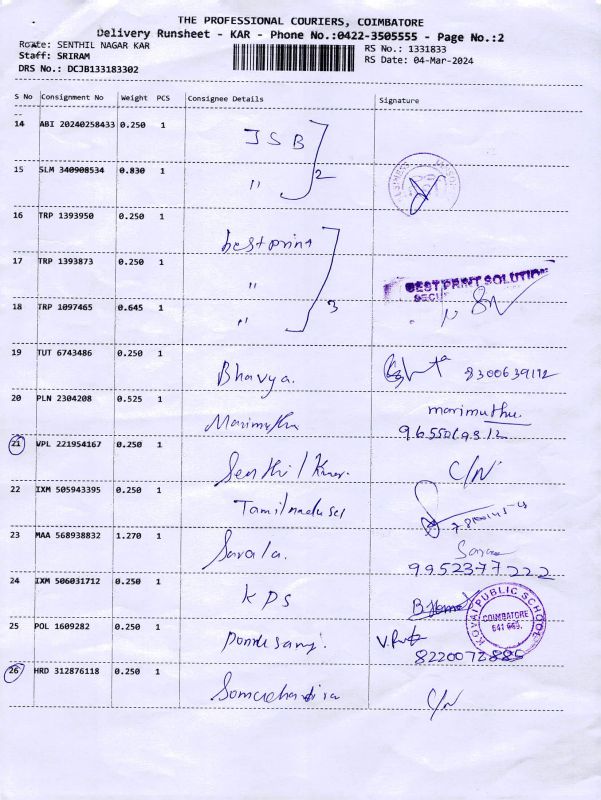 THE PROFESSIONAL COURIERS, COIMBATORE
Delivery Runsheet - KAR - Phone No.:0422-3505555 - Page No.:2
Route: SENTHIL NAGAR KAR
RS No.: 1331833
Staff: SRIRAM
RS Date: 04-Mar-2024
DRS No.: DCJB133183302
S No Consignment No Weight PCS Consignee Details Signature
--
14 ABI 20240258433 0.250 1 JSB
15 SLM 340908534 0.830 1 " 2
16 TRP 1393950 0.250 1 bestprint
17 TRP 1393873 0.250 1 " BEST PRINT SOLUTION
18 TRP 1097465 0.645 1 " 3
19 TUT 6743486 0.250 1 Bhavya. 8300639112
20 PLN 2304208 0.525 1 Marimuthu marimuthu.
21 VPL 221954167 0.250 1 C/N
22 IXM 505943395 0.250 1
23 MAA 568938832 1.270 1 Sarala. 9952377222
24 IXM 506031712 0.250 1 KPS
KOVAI PUBLIC SCHOOL
COIMBATORE
25 POL 1609282 0.250 1 8220072886
26 HRD 312876118 0.250 1 C/N